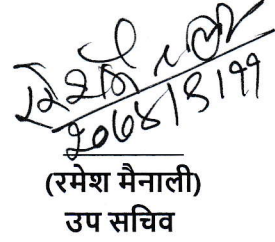 २०७४।९।११
(रमेश मैनाली)
उप सचिव